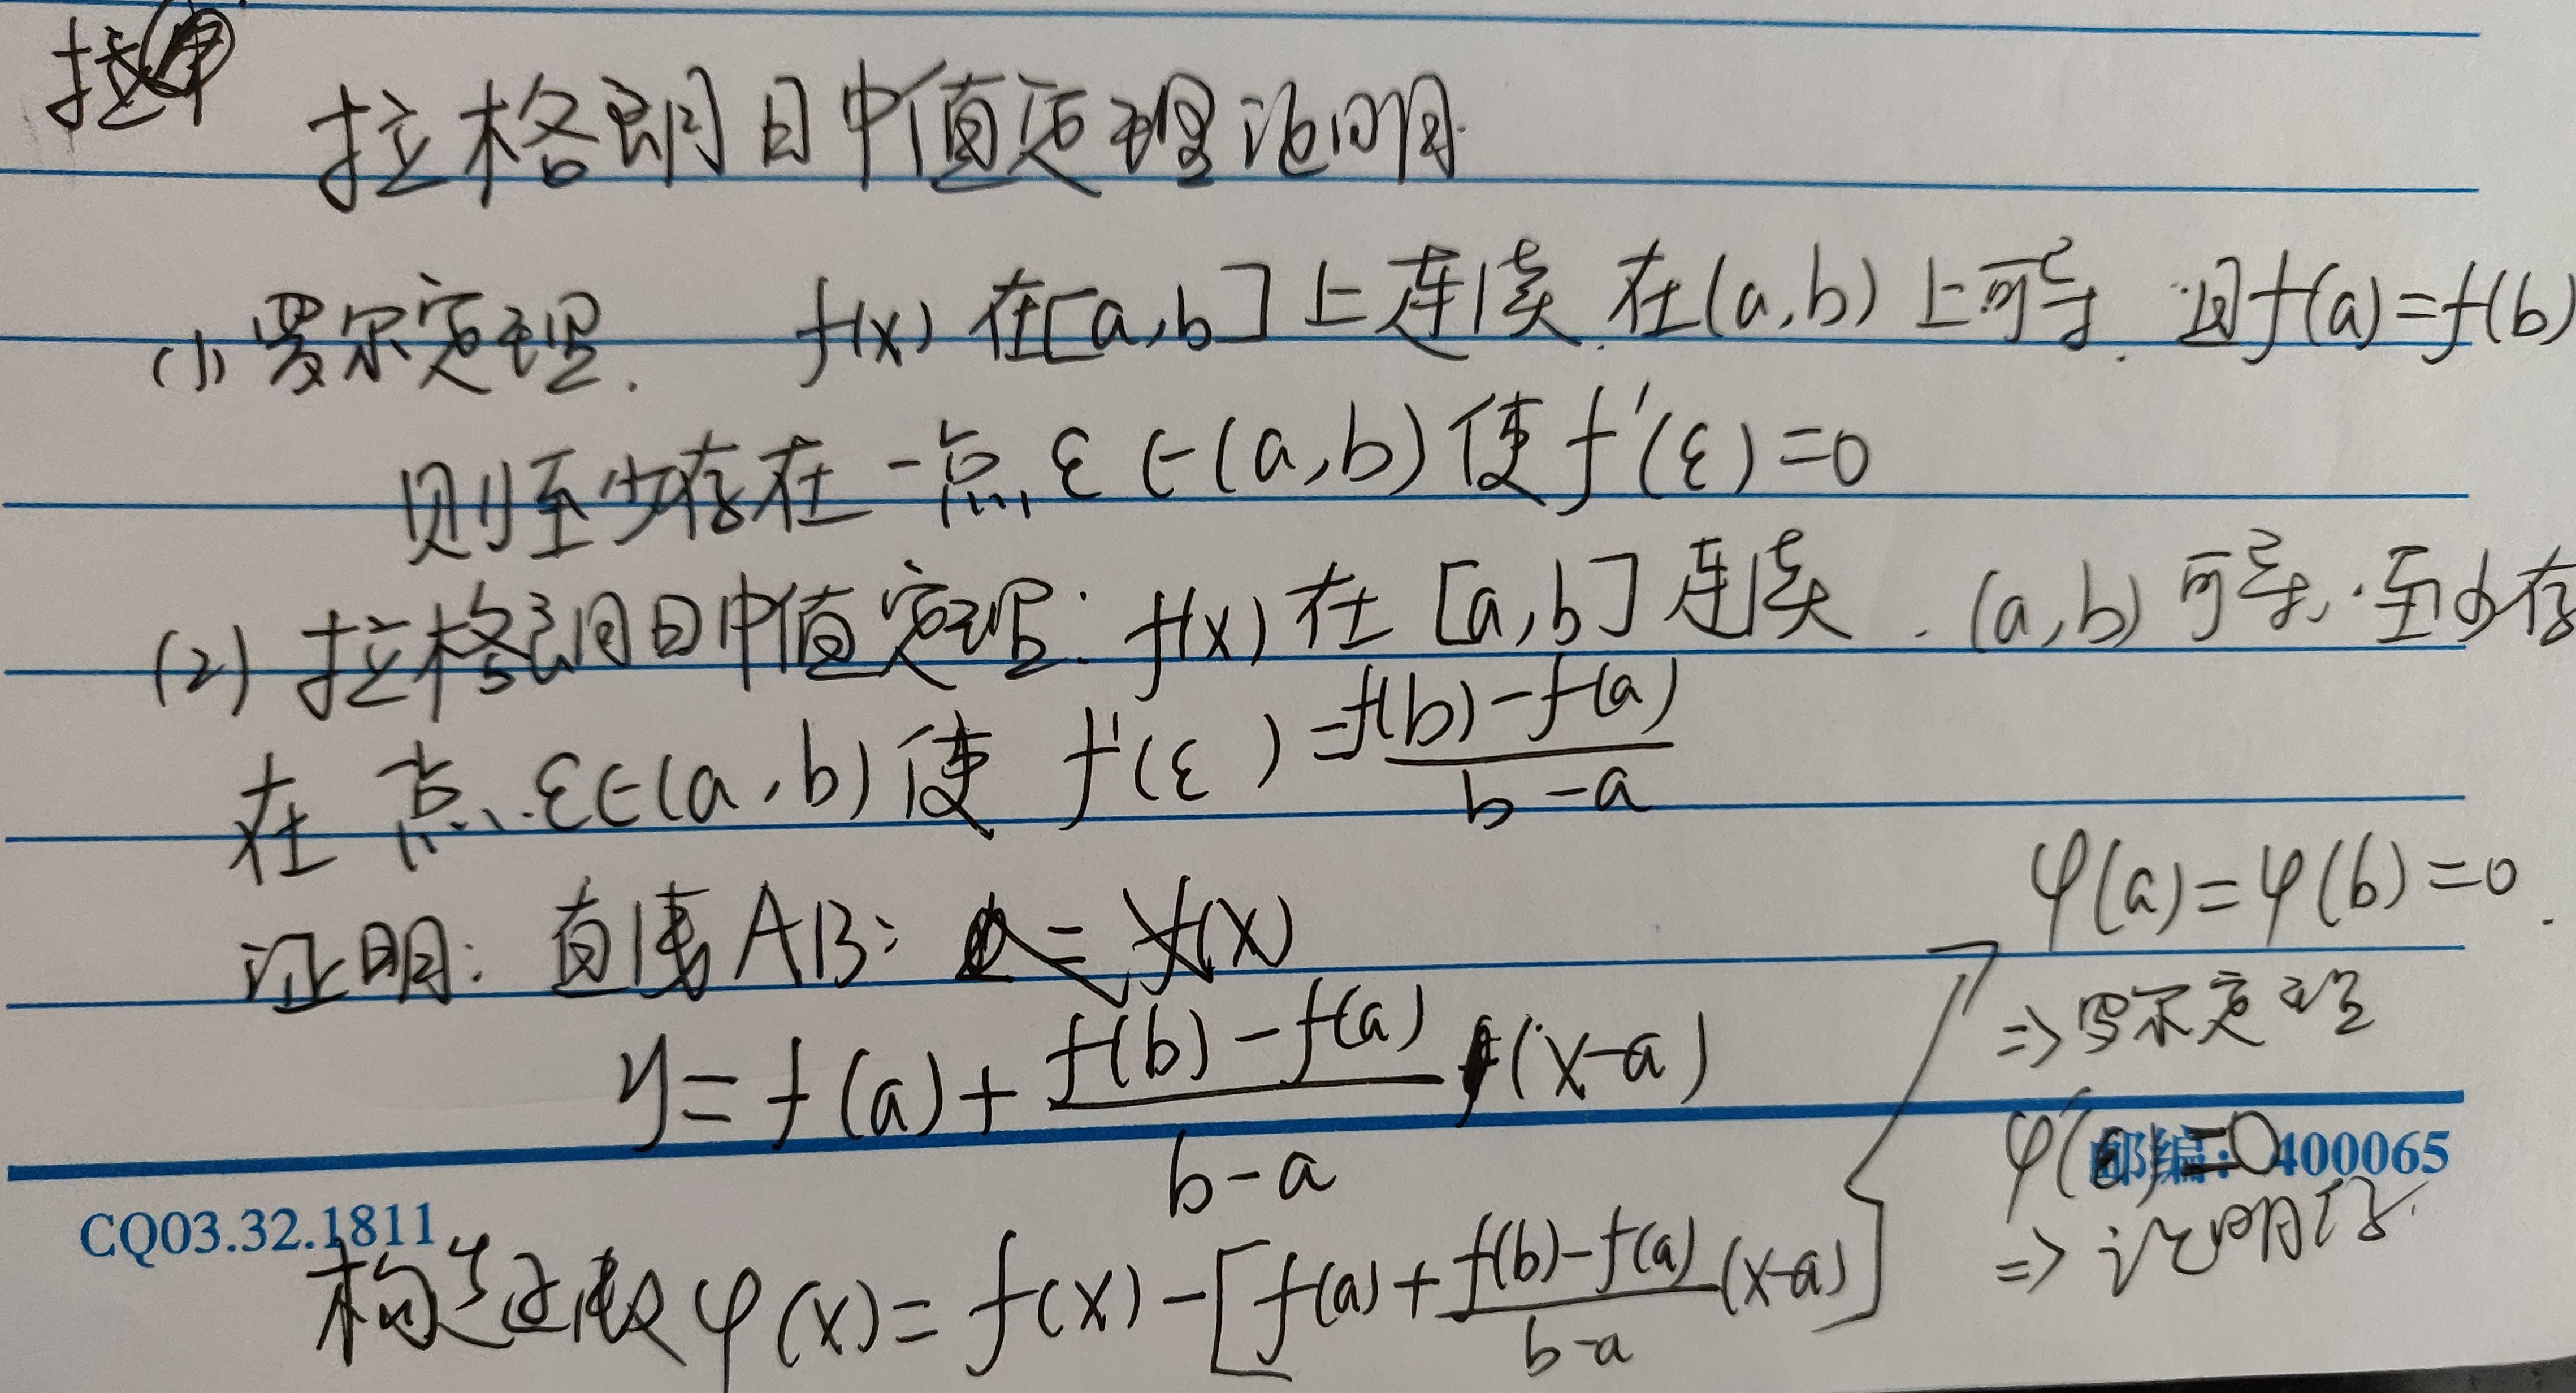 拉格朗日中值定理证明
(1) 罗尔定理. f(x) 在[a,b]上连续.在(a,b)上可导. 且f(a)=f(b)
则至少存在一点 ε∈(a,b) 使 f'(ε)=0
(2) 拉格朗日中值定理: f(x) 在 [a,b] 连续. (a,b) 可导. 至少存
在 点 ε∈(a,b) 使 f'(ε)=f(b)-f(a)/b-a
证明: 直线AB:
y=f(a)+f(b)-f(a)/b-a(x-a)
构造函数φ(x)=f(x)-[f(a)+f(b)-f(a)/b-a(x-a)]
φ(a)=φ(b)=0.
⇒罗尔定理
φ'(ε)=0
⇒证明得.
CQ03.32.1811
邮编:400065